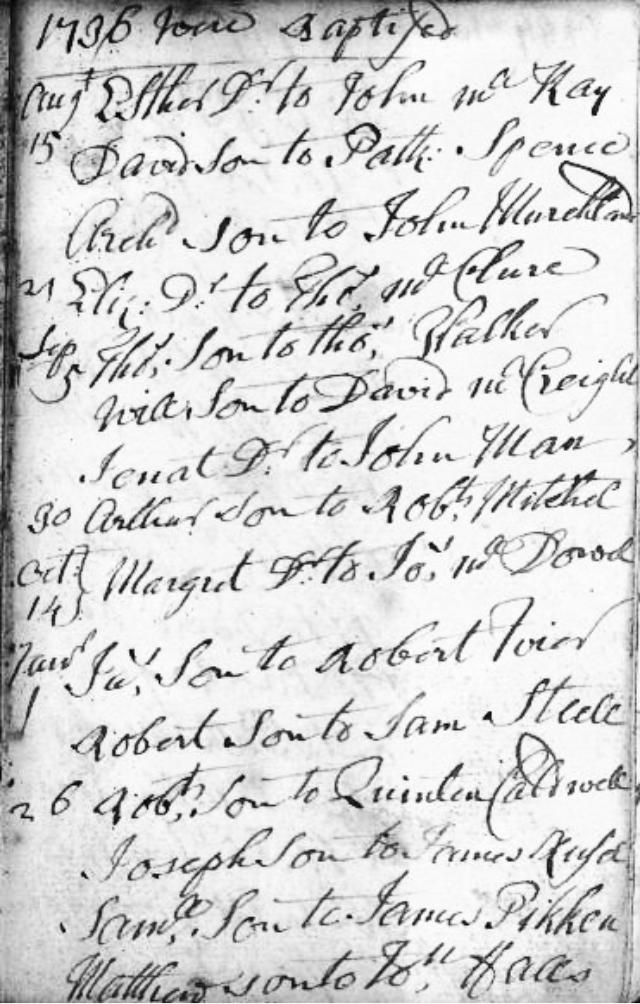 1736 were Baptised
Augt Esther Dr to John mc Kay
15 David Son to Patk: Spence
Archd Son to John Murchland
21 Eliz: Dr to Thos mc Clure
Sep 5 Thos Son to thos Walker
Will Son to David mc Creight
Jenat Dr to John Man
30 Arthur Son to Robt Mitchel
Oct 14 Margret Dr to Jos mc Dowel
Janr 1 Jas Son to Robert
Robert Son to Sam Steele
26 Robt Son to Quinten Caldwell
Joseph Son to James
Saml Son to James Pikken
Matthew son to